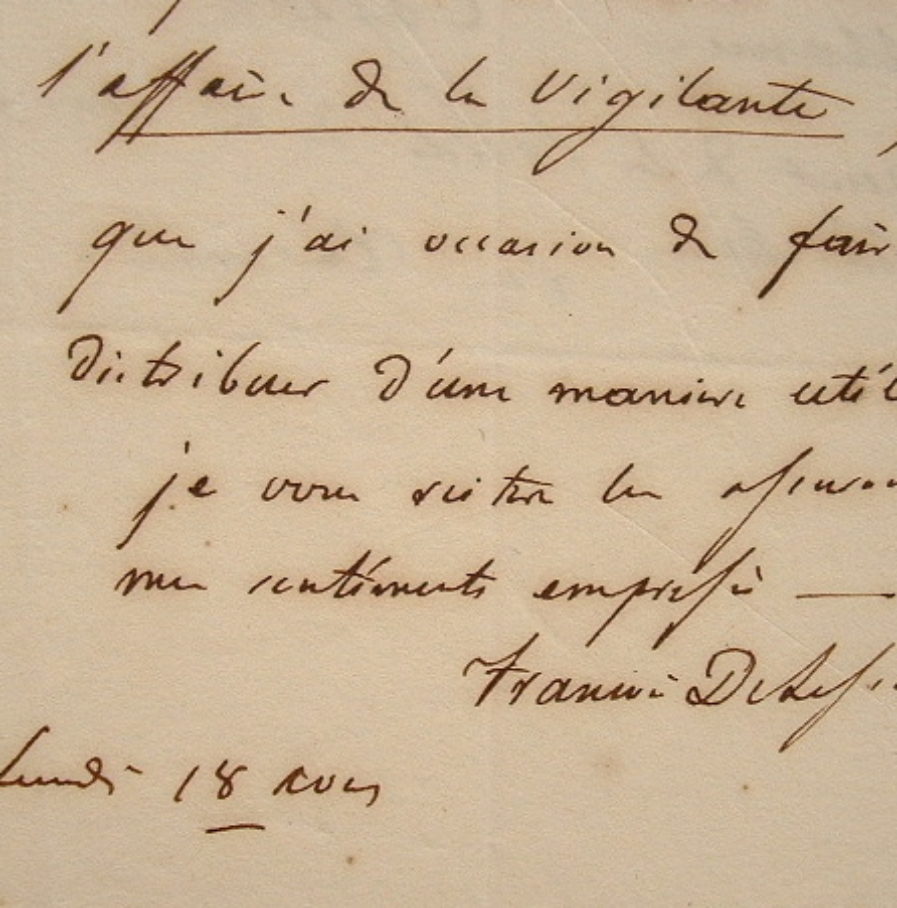 l'affaire de la Vigilante,
que j'ai occasion de fair
distribuer d'une maniere util
je vous reitere les assuran
mes sentiments empressés —
Francois Deless
Lundi 18